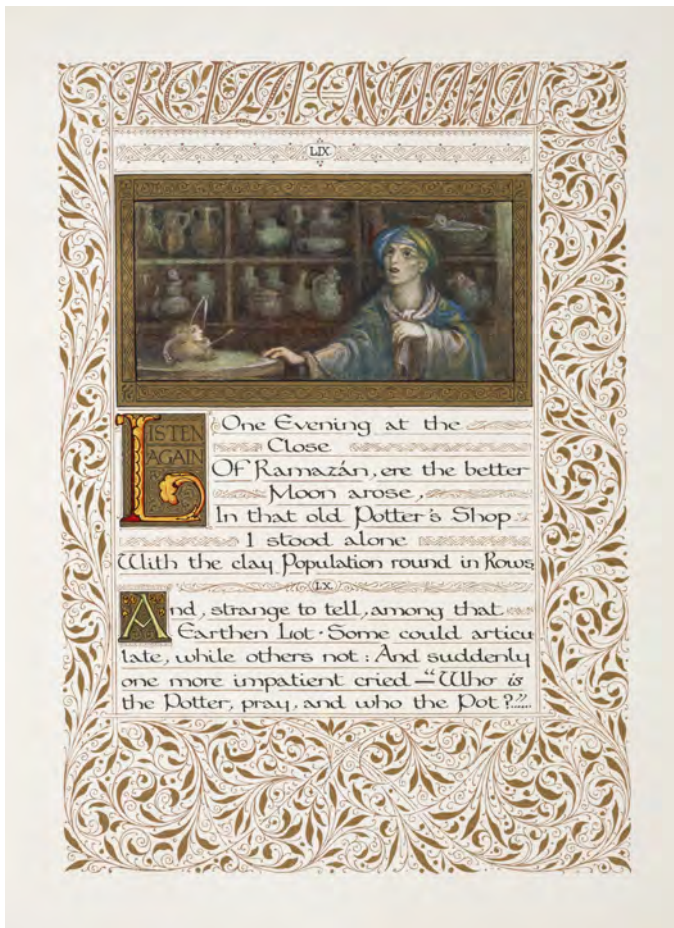 KUZA-NAMA
LIX
LISTEN AGAIN One Evening at the
Close
Of Ramazán, ere the better
Moon arose,
In that old Potter's Shop
I stood alone
With the clay Population round in Rows
LX
And, strange to tell, among that
Earthen Lot · Some could articu
late, while others not : And suddenly
one more impatient cried — "Who is
the Potter, pray, and who the Pot ?"......